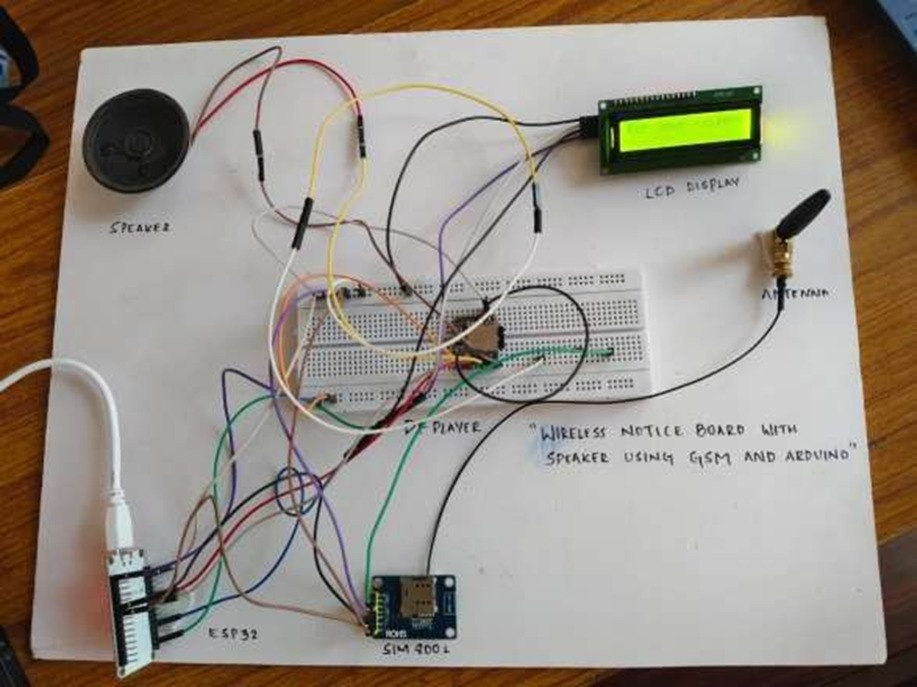 SPEAKER
LCD DISPLAY
ANTENNA
DFPLAYER
"WIRELESS NOTICE BOARD WITH
SPEAKER USING GSM AND ARDUINO"
ESP32
SIM 800L